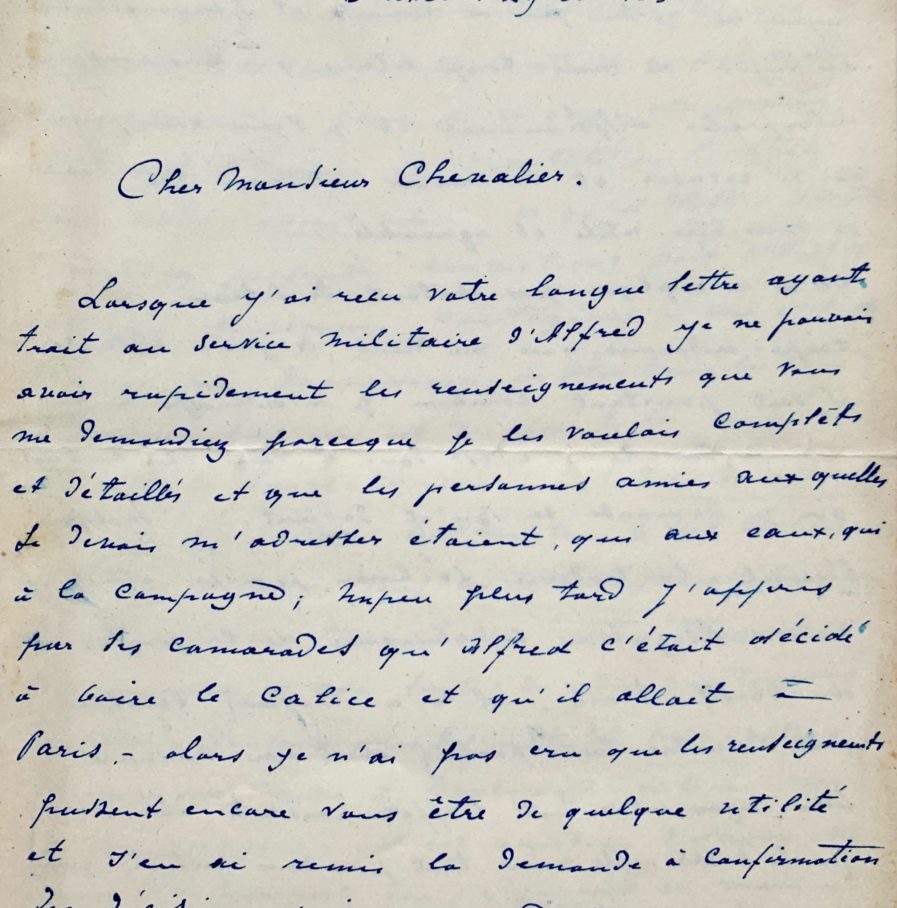 Cher Monsieur Chevalier.
Lorsque j'ai reçu votre longue lettre ayant
trait au service militaire d'Alfred je ne pouvais
avoir rapidement les renseignements que vous
me demandiez parceque je les voulais complets
et détaillés et que les personnes amies auxquelles
je devais m'adresser étaient, qui aux eaux, qui
à la campagne; unpeu plus tard j'appris
par des camarades qu'Alfred c'était décidé
à boire le calice et qu'il allait à
Paris. - alors je n'ai pas cru que les renseignements
pussent encore vous être de quelque utilité
et j'en ai remis la demande à confirmation